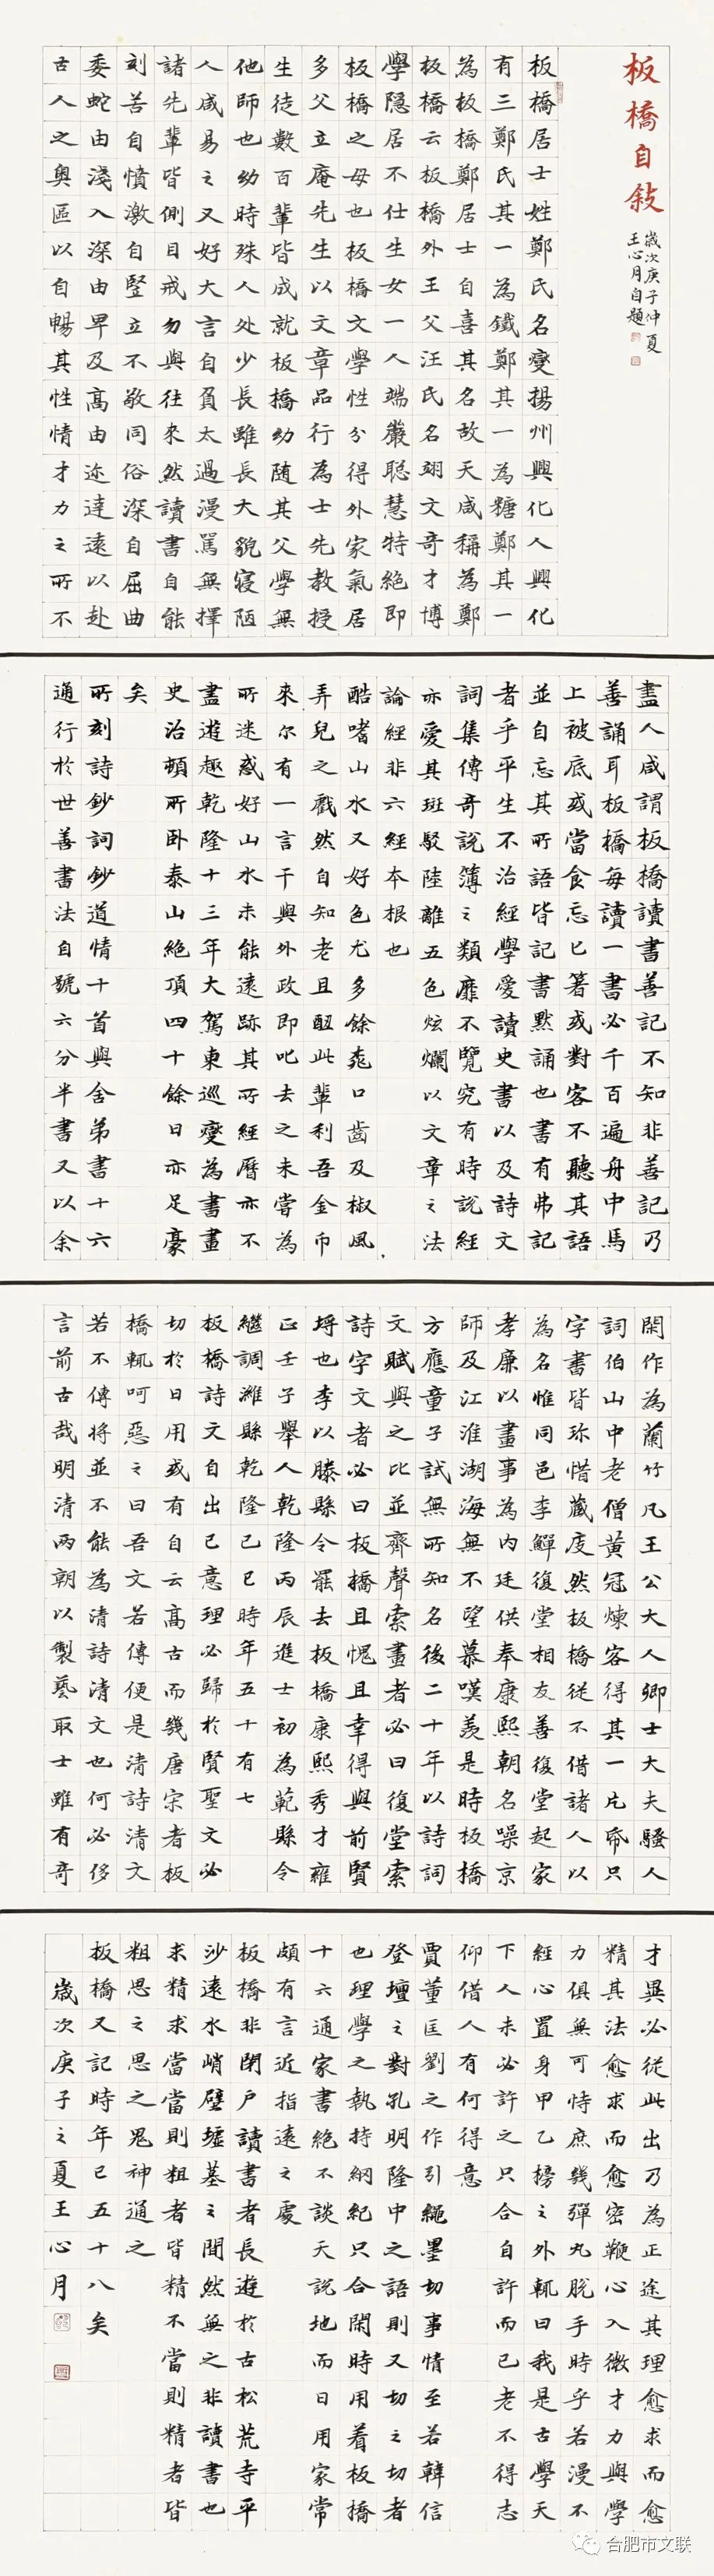 板橋自敍
歲次庚子仲夏
王心月自題
板橋居士姓鄭氏名燮揚州興化人興化
有三鄭氏其一為鐵鄭其一為糖鄭其一
為板橋鄭居士自喜其名故天咸稱為鄭
板橋云板橋外王父汪氏名翊文奇才博
學隱居不仕生女一人端嚴聰慧特絕即
板橋之母也板橋文學性分得外家氣居
多父立庵先生以文章品行為士先教授
生徒數百輩皆成就板橋幼隨其父學無
他師也幼時殊人處少長雖長大貌寢陋
人咸易之又好大言自負太過漫罵無擇
諸先輩皆側目戒勿與往來然讀書自能
刻苦自憤激自豎立不敬同俗深自屈曲
委蛇由淺入深由卑及高由迩達遠以赴
古人之奧區以自暢其性情才力之所不
盡人咸謂板橋讀書善記不知非善記乃
善誦耳板橋每讀一書必千百遍舟中馬
上被底或當食忘匕箸或對客不聽其語
並自忘其所語皆記書默誦也書有弗記
者乎平生不治經學愛讀史書以及詩文
詞集傳奇說簿之類靡不覽究有時說經
亦愛其斑駁陸離五色炫爛以文章之法
論經非六經本根也
酷嗜山水又好色尤多餘桃口齒及椒風
弄兒之戲然自知老且醜此輩利吾金币
來尔有一言干與外政即叱去之未嘗為
所迷惑好山水未能遠跡其所經曆亦不
盡遊趣乾隆十三年大駕東巡燮為書畫
史治頓所卧泰山絕頂四十餘日亦足豪
矣
所刻詩鈔詞鈔道情十首與舍弟書十六
通行於世善書法自號六分半書又以余
閑作為蘭竹凡王公大人卿士大夫騷人
詞伯山中老僧黃冠煉客得其一片帋只
字書皆珍惜藏庋然板橋從不借諸人以
為名惟同邑李鱓復堂相友善復堂起家
孝廉以畫事為內廷供奉康熙朝名噪京
師及江淮湖海無不望慕嘆羨是時板橋
方應童子試無所知名後二十年以詩詞
文賦與之比並齊聲索畫者必曰復堂索
詩字文者必曰板橋且愧且幸得與前賢
埒也李以滕縣令罷去板橋康熙秀才雍
正壬子舉人乾隆丙辰進士初為範縣令
繼調濰縣乾隆己巳時年五十有七
板橋詩文自出己意理必歸於賢聖文必
切於日用或有自云高古而幾唐宋者板
橋輒呵惡之曰吾文若傳便是清詩清文
若不傳將並不能為清詩清文也何必侈
言前古哉明清兩朝以製藝取士雖有奇
才異必從此出乃為正途其理愈求而愈
精其法愈求而愈密鞭心入微才力與學
力俱無可恃庶幾彈丸脫手時乎若漫不
經心置身甲乙榜之外輒曰我是古學天
下人未必許之只合自許而已老不得志
仰借人有何得意
賈董匡劉之作引繩墨切事情至若韓信
登壇之對孔明隆中之語則又切之切者
也理學之執持綱紀只合閑時用着板橋
十六通家書絕不談天說地而日用家常
頗有言近指遠之處
板橋非閉戶讀書者長遊於古松荒寺平
沙遠水峭壁墟墓之間然無之非讀書也
求精求當當則粗者皆精不當則精者皆
粗思之思之鬼神通之
板橋又記時年已五十八矣
歲次庚子之夏王心月
合肥市文联